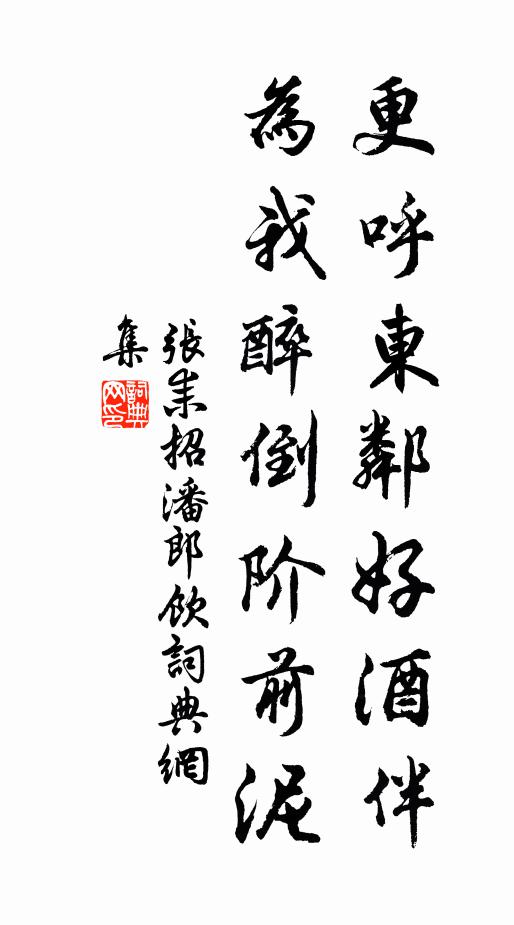 更呼東鄰好酒伴
為我醉倒阶前泥
張耒招潘郎飲詞典網
集
詞典
网印